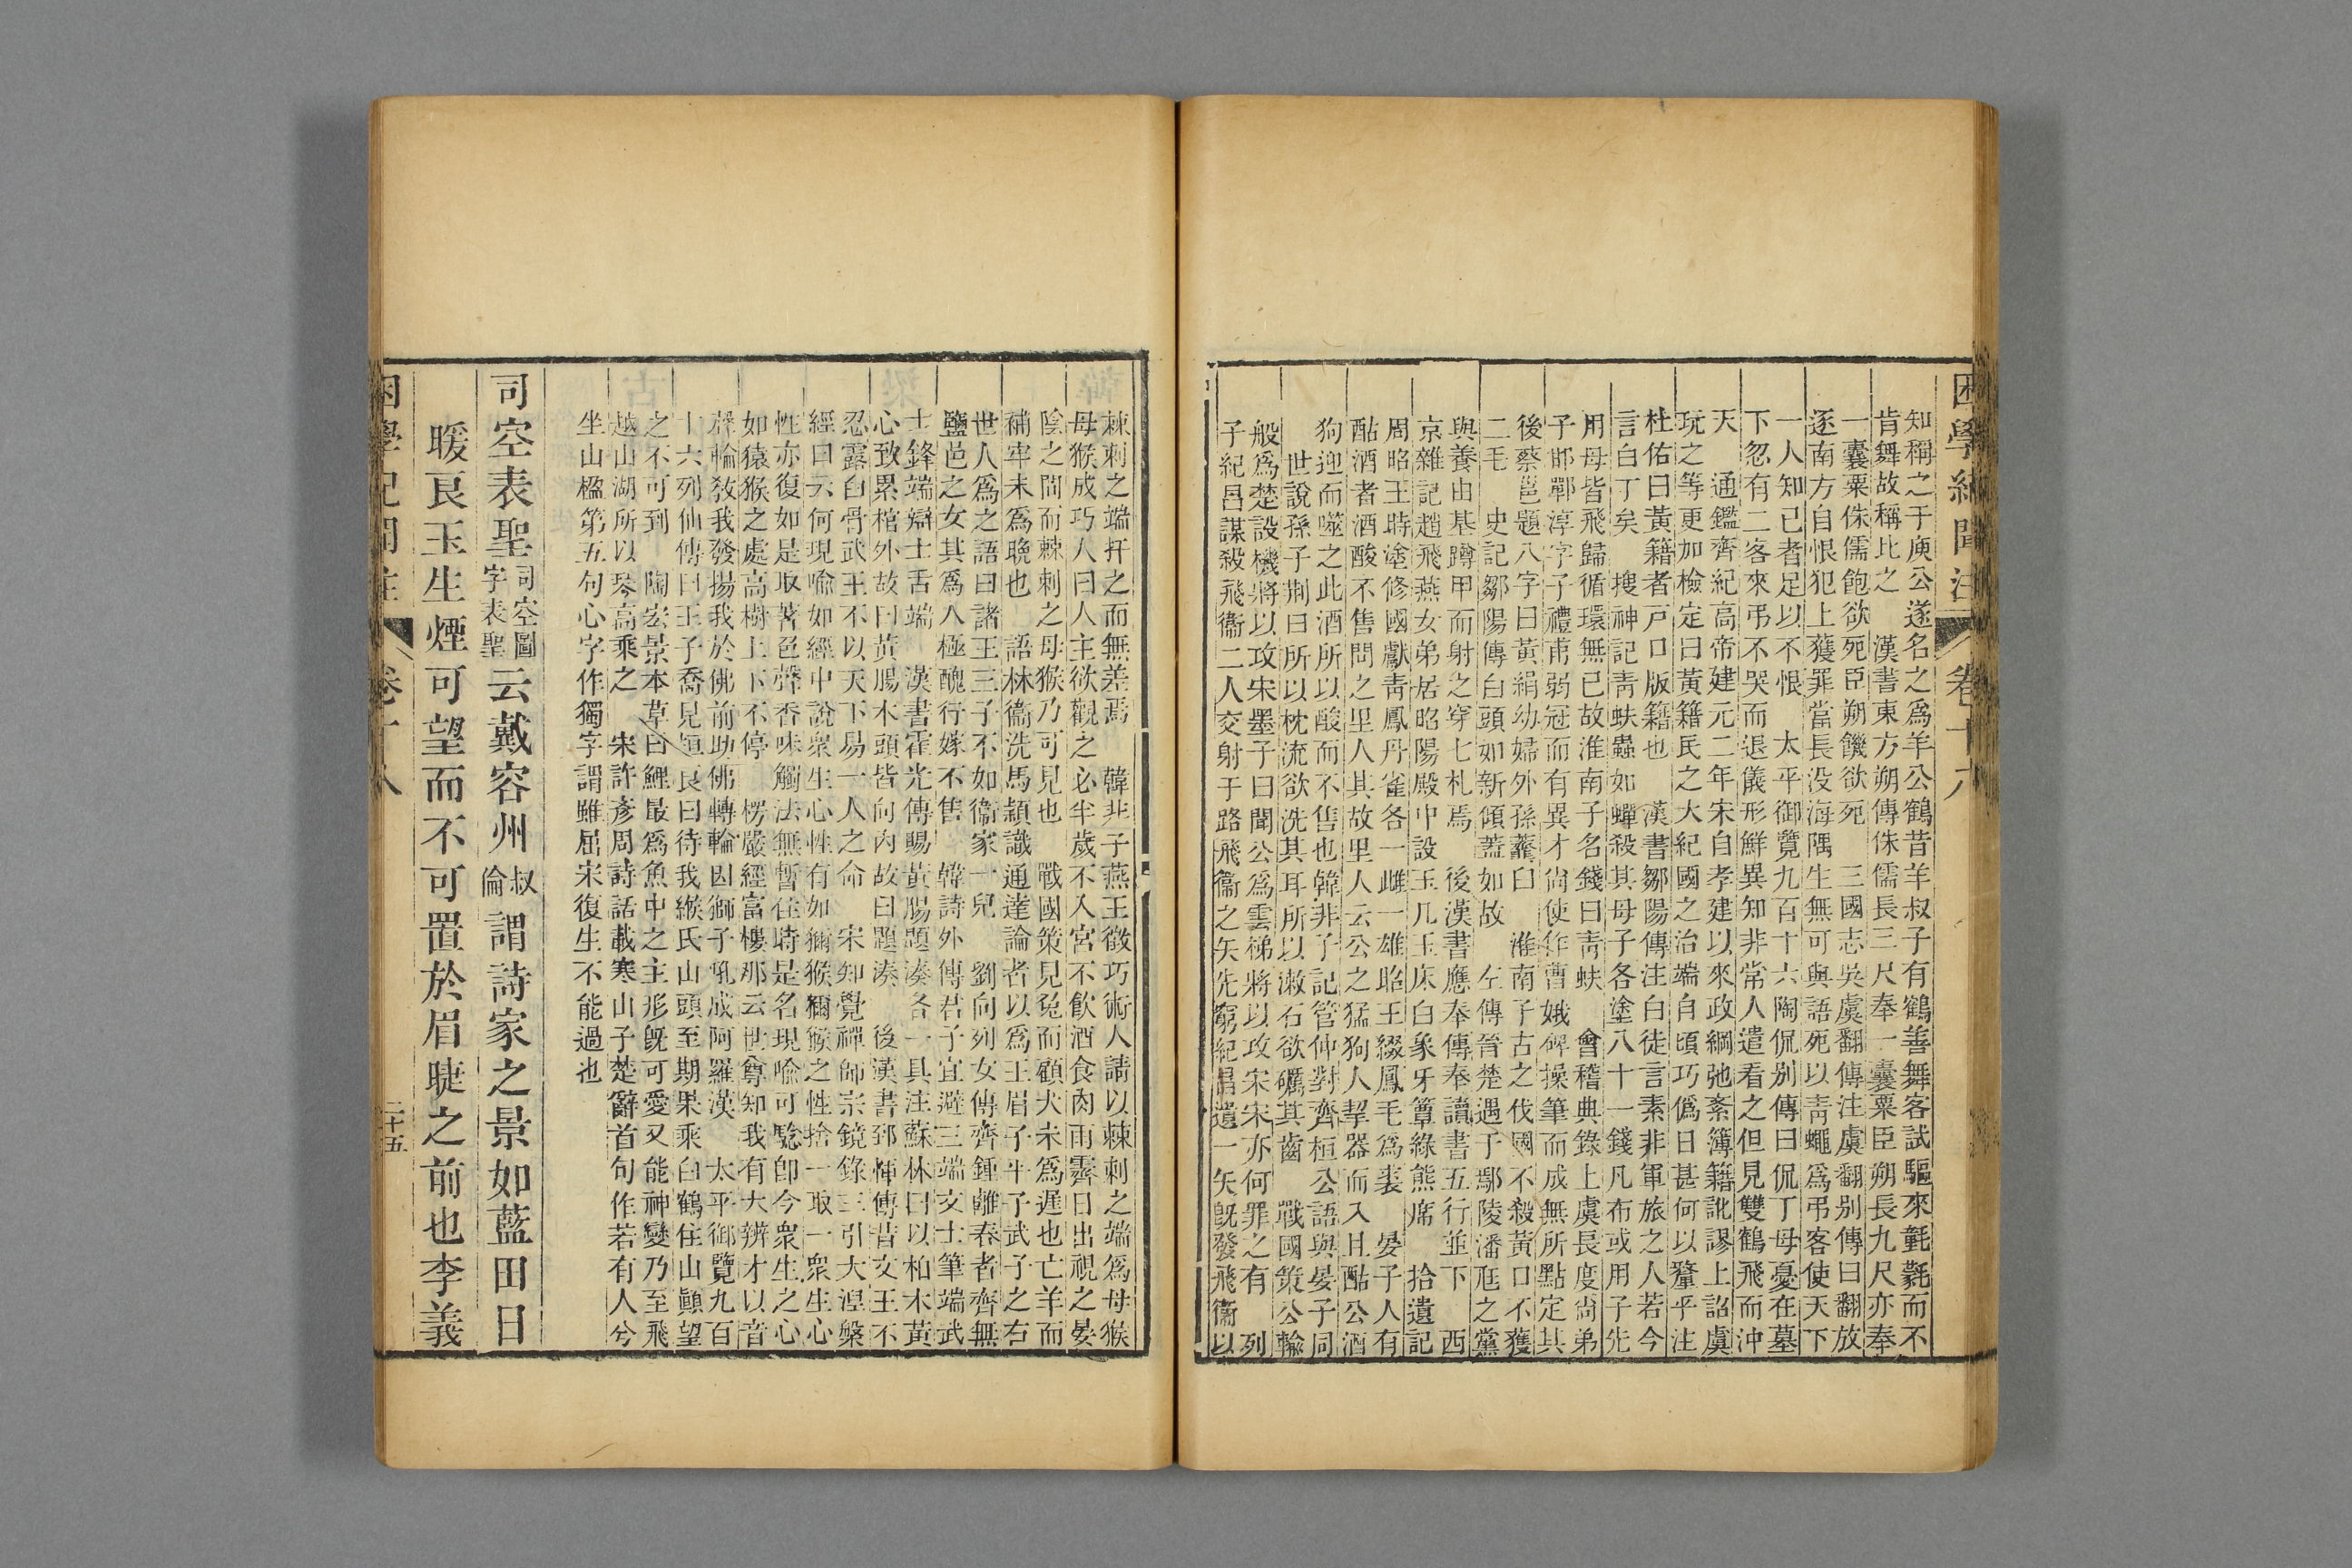 困學紀聞注 卷十八
知稱之于庾公遂名之爲羊公鶴昔羊叔子有鶴善舞客試驅來氃氋而不
肯舞故稱比之 漢書東方朔傳侏儒長三尺奉一囊粟臣朔長九尺亦奉
一囊粟侏儒飽欲死臣朔饑欲死 三國志吳虞翻傳注虞翻别傳曰翻放
逐南方自恨犯上獲罪當長没海隅生無可與語死以靑蠅爲弔客使天下
一人知己者足以不恨 太平御覽九百十六陶侃别傳曰侃丁母憂在墓
下忽有二客來弔不哭而退儀形鮮異知非常人遣看之但見雙鶴飛而冲
天 通鑑齊紀高帝建元二年宋自孝建以來政綱弛紊簿籍訛謬上詔虞
玩之等更加檢定曰黃籍民之大紀國之治端自頃巧僞日甚何以釐乎注
杜佑曰黃籍者戸口版籍也 漢書鄒陽傳注白徒言素非軍旅之人若今
言白丁矣 搜神記靑蚨蟲如蟬殺其母子各塗八十一錢凡布或用子先
用母皆飛歸循環無已故淮南子名錢曰靑蚨 會稽典錄上虞長度尙弟
子邯鄲淳字子禮甫弱冠而有異才尙使作曹娥碑操筆而成無所點定其
後蔡邕題八字曰黃絹幼婦外孫虀臼 淮南子古之伐國不殺黃口不獲
二毛 史記鄒陽傳白頭如新傾蓋如故 左傳晉楚遇于鄢陵潘尫之黨
與養由基蹲甲而射之穿七札焉 後漢書應奉傳奉讀書五行並下 西
京雜記趙飛燕女弟居昭陽殿中設玉几玉床白象牙簟綠熊席 拾遺記
周昭王時塗修國獻靑鳳丹雀各一雌一雄昭王綴鳳毛爲裘 晏子人有
酤酒者酒酸不售問之里人其故里人云公之猛狗人挈器而入且酤公酒
狗迎而噬之此酒所以酸而不售也韓非子記管仲對齊桓公語與晏子同
 世說孫子荆曰所以枕流欲洗其耳所以漱石欲礪其齒 戰國策公輸
般爲楚設機將以攻宋墨子曰聞公爲雲梯將以攻宋宋亦何罪之有 列
子紀昌謀殺飛衞二人交射于路飛衞之矢先窮紀昌遺一矢旣發飛衞以
棘刺之端扞之而無差焉 韓非子燕王徵巧術人請以棘刺之端爲母猴
母猴成巧人曰人主欲觀之必半歲不入宮不飮酒食肉雨霽日出視之晏
陰之間而棘刺之母猴乃可見也 戰國策見兔而顧犬未爲遲也亡羊而
補牢未爲晩也 語林衞洗馬頴識通達論者以爲王眉子平子武子之右
世人爲之語曰諸王三子不如衞家一兒 劉向列女傳齊鍾離春者齊無
鹽邑之女其爲人極醜行嫁不售 韓詩外傳君子宜避三端文士筆端武
士鋒端辯士舌端 漢書霍光傳賜黃腸題湊各一具注蘇林曰以柏木黃
心致累棺外故曰黃腸木頭皆向內故曰題湊 後漢書郅惲傳昔文王不
忍露白骨武王不以天下易一人之命 宋知覺禪師宗鏡錄三引大湼槃
經曰云何現喩如經中說衆生心性有如獼猴獼猴之性捨一取一衆生心
性亦復如是取著色聲香味觸法無暫住時是名現喩可驗卽今衆生之心
如猿猴之處高樹上下不停 楞嚴經富樓那云世尊知我有大辨才以音
聲輪敎我發揚我於佛前助佛轉輪因獅子吼成阿羅漢 太平御覽九百
十六列仙傳曰王子喬見𣑭良曰待我緱氏山頭至期果乘白鶴住山顚望
之不可到 陶宏景本草曰鯉最爲魚中之主形旣可愛又能神變乃至飛
越山湖所以琴高乘之 宋許彥周詩話載寒山子楚辭首句作若有人兮
坐山楹第五句心字作獨字謂雖屈宋復生不能過也
司空表聖司空圖字表聖云戴容州叔倫謂詩家之景如藍田日
暖良玉生煙可望而不可置於眉睫之前也李義
困學紀聞注 卷十八 二十五